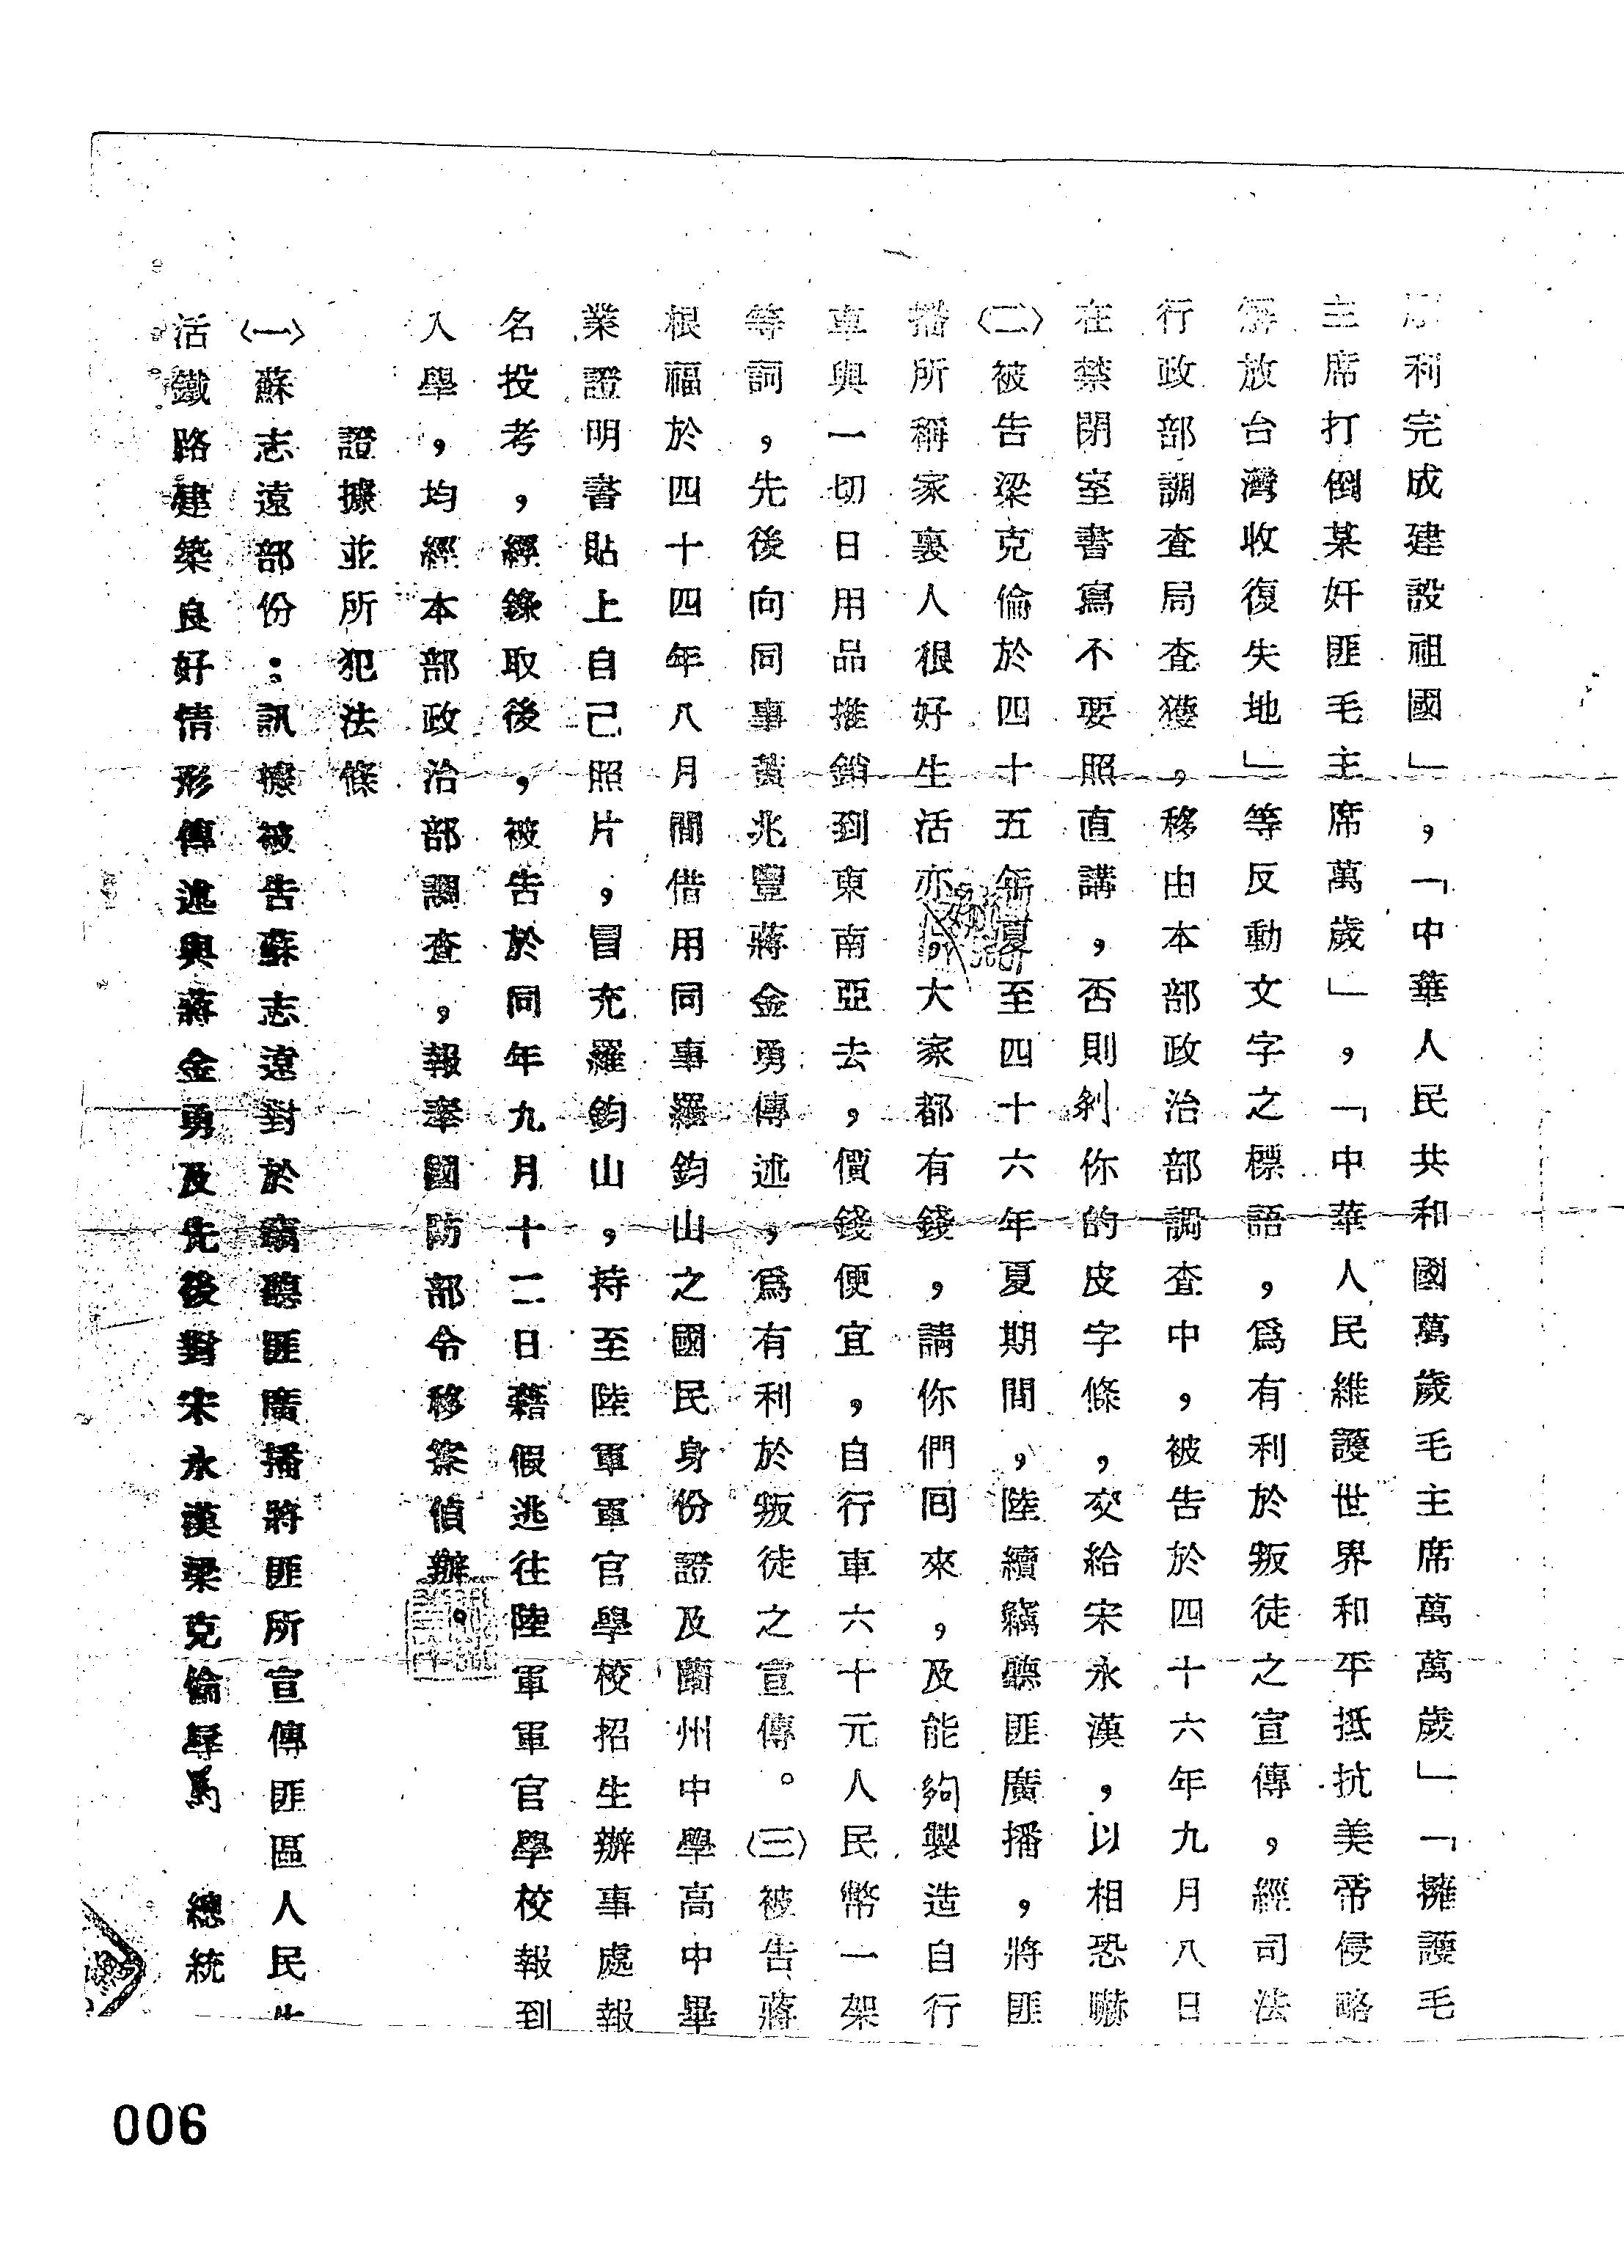 利完成建設祖國」，「中華人民共和國萬歲毛主席萬萬歲」「擁護毛
主席打倒某奸匪毛主席萬歲」，「中華人民維護世界和平抵抗美帝侵略
解放台灣收復失地」等反動文字之標語，為有利於叛徒之宣傳，經司法
行政部調查局查獲，移由本部政治部調查中，被告於四十六年九月八日
在禁閉室書寫不要照直講，否則剝你的皮字條，交給宋永漢，以相恐嚇
〈二〉被告梁克倫於四十五年夏至四十六年夏期間，陸續竊聽匪廣播，將匪
播所稱家裏人很好生活亦，大家都有錢，請你們回來，及能夠製造自行
車與一切日用品推銷到東南亞去，價錢便宜，自行車六十元人民幣一架
等詞，先後向同事黃兆豐蔣金勇傳述，為有利於叛徒之宣傳。〈三〉被告蔣
根福於四十四年八月間借用同事羅鈞山之國民身份證及蘭州中學高中畢
業證明書貼上自己照片，冒充羅鈞山，持至陸軍軍官學校招生辦事處報
名投考，經錄取後，被告於同年九月十二日藉假逃往陸軍軍官學校報到
入學，均經本部政治部調查，報奉國防部令移案偵辦。
證據並所犯法條
〈一〉蘇志遠部份：訊據被告蘇志遠對於竊聽匪廣播將匪所宣傳匪區人民生
活鐵路建築良好情形傳述與蔣金勇及先後對宋永漢梁克倫辱罵　總統
006